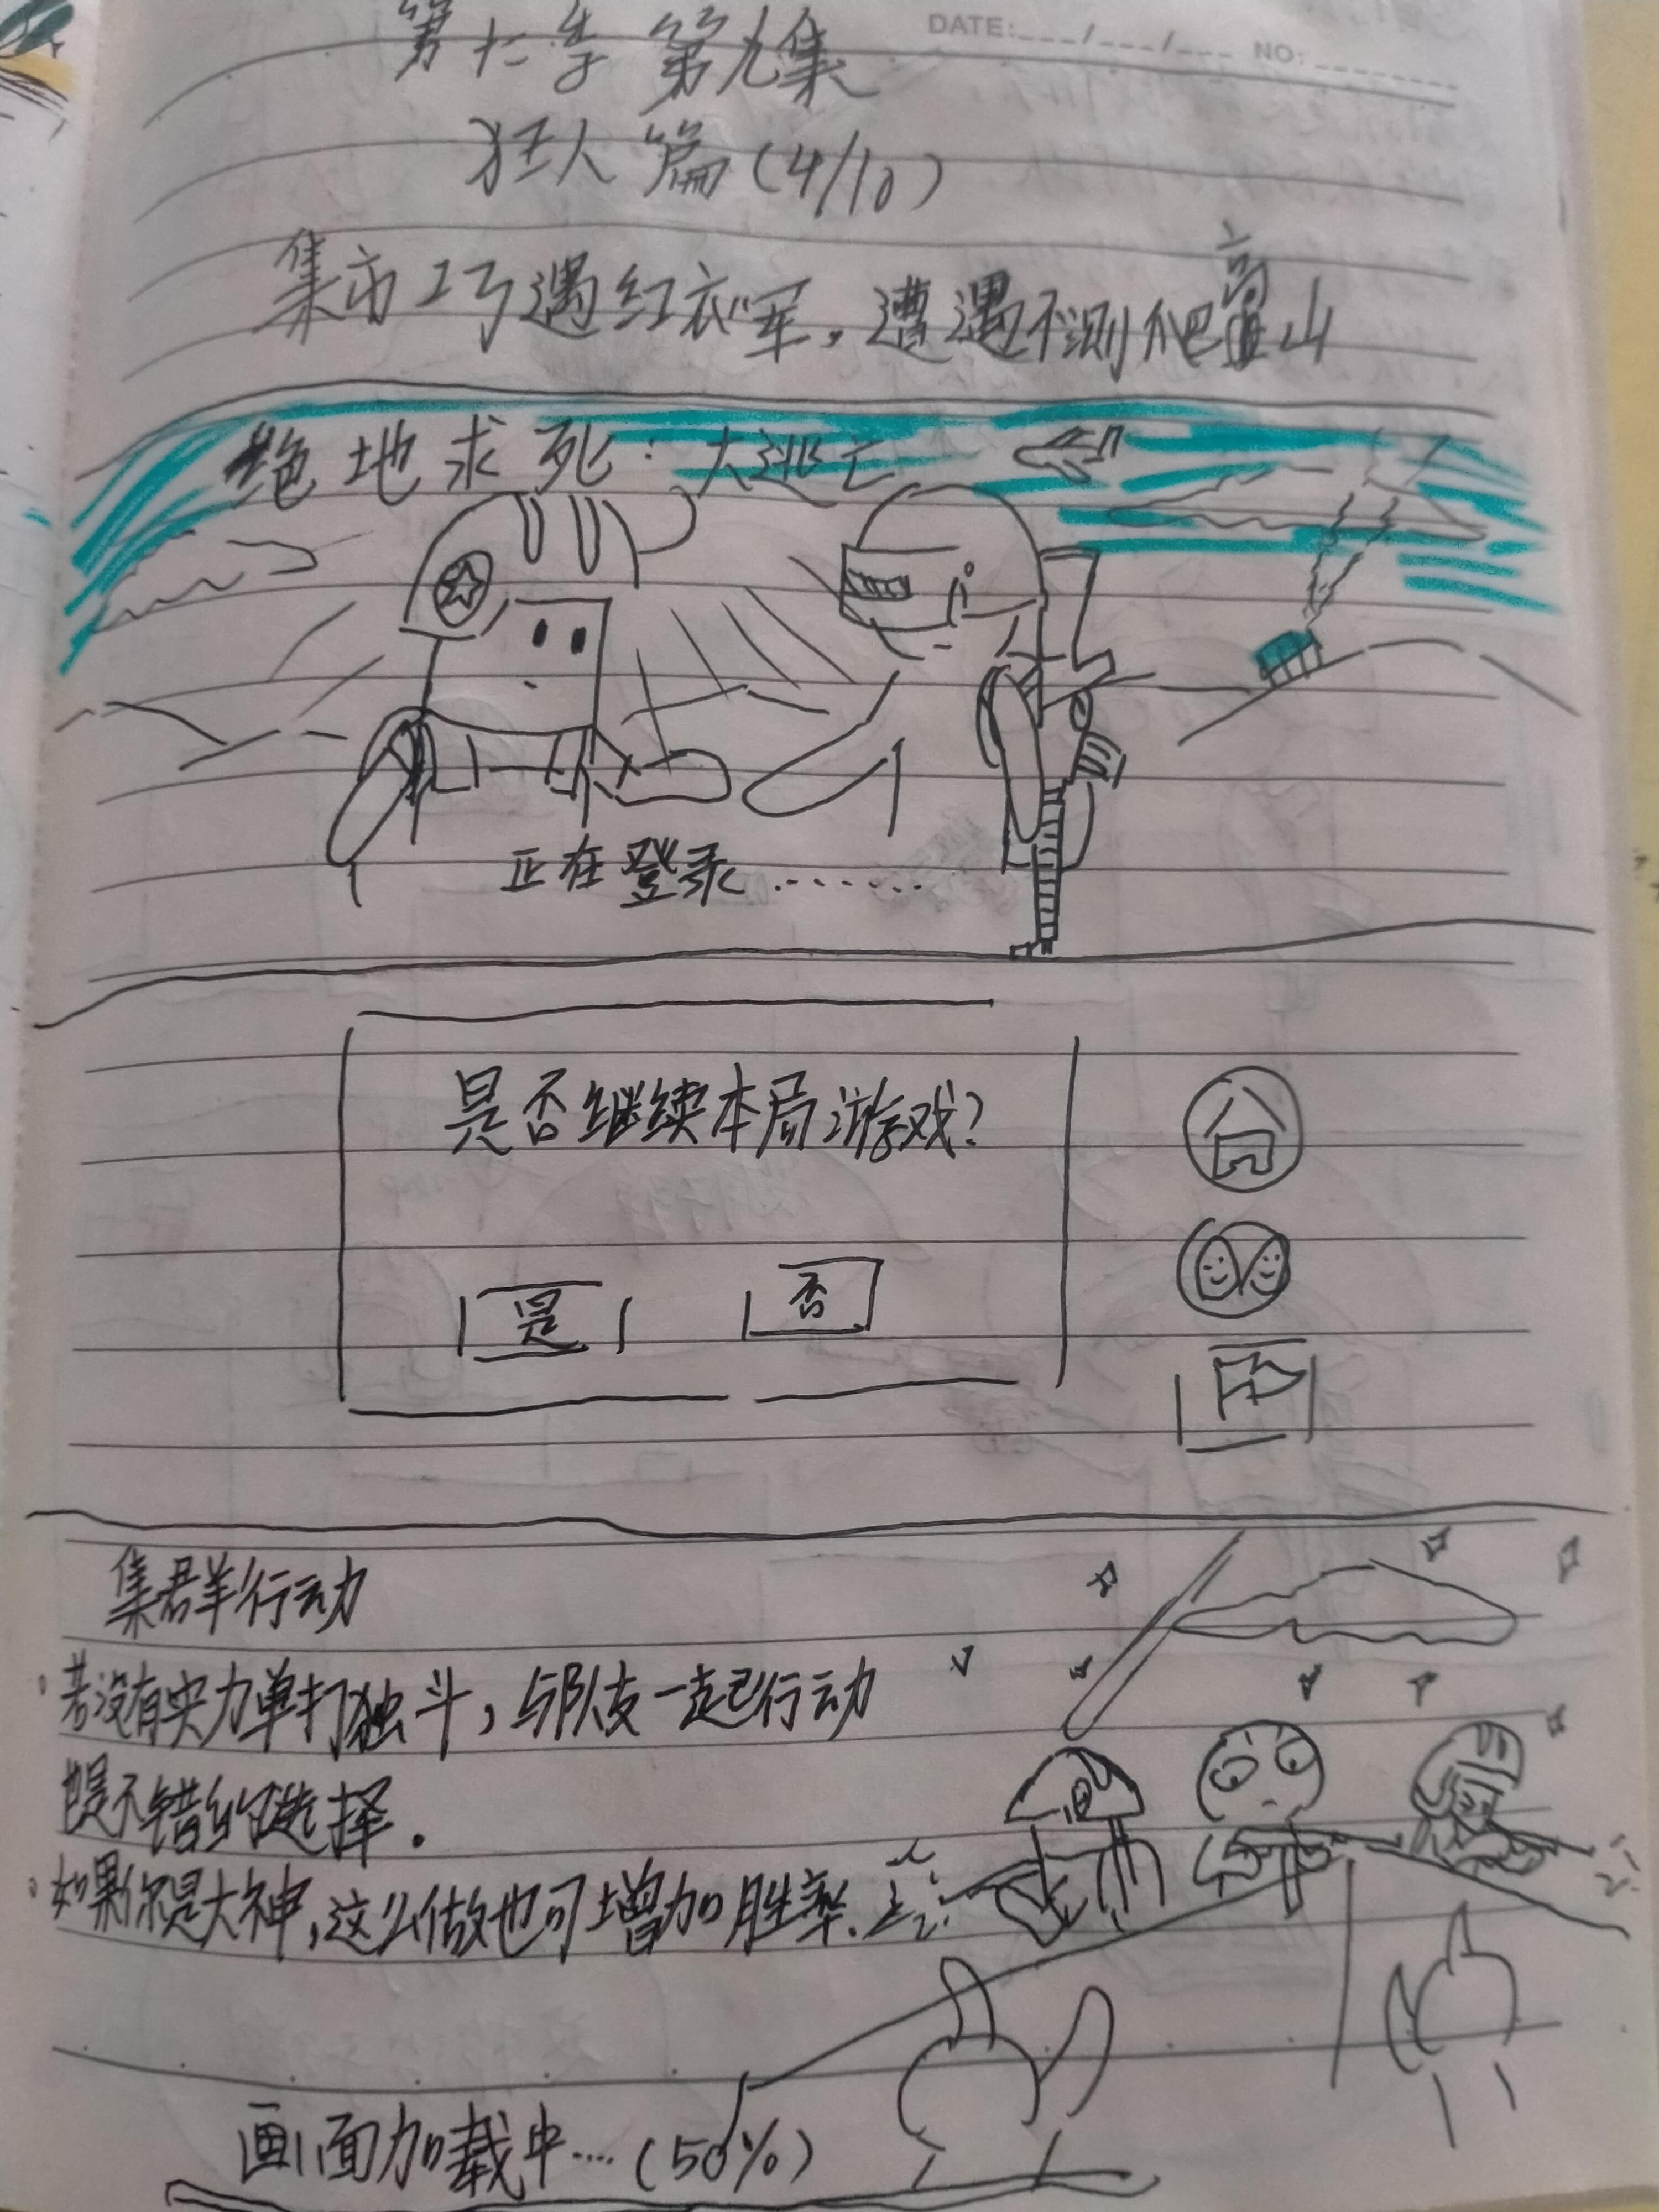 DATE:___/___/___ NO:________
第七季 第九集
狂人篇(4/10)
集市巧遇红衣军，遭遇不测爬高山
绝地求死：大逃亡
正在登录........
是否继续本局游戏?
是 否
集群行动
·若没有实力单打独斗，与队友一起行动
也是不错的选择.
·如果你是大神,这么做也可增加胜率.
画面加载中....(50%)